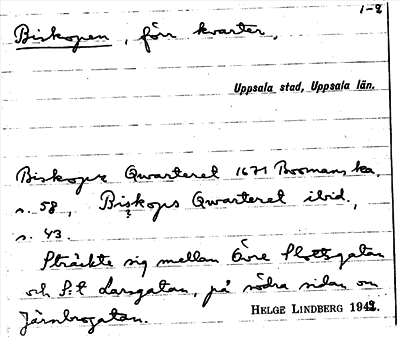 1-8
Biskopen, förr kvarter,
Uppsala stad, Uppsala län.
Biskops Qwarteret 1671 Boomans ka.
s. 58, Biskops Qwarteret ibid.,
s. 43
Sträckte sig mellan Övre Slottsgatan
och S:t Larsgatan, på södra sidan om
Järnbrogatan.
HELGE LINDBERG 1942.